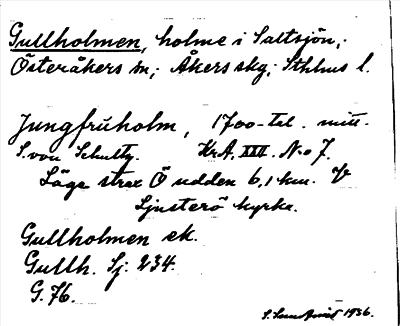 Gullholmen, holme i Saltsjön,
Österåkers sn; Åkers skg; Sthlms l.
Jungfruholm, 1700-tal. mitt.
S. von Schultz. KrA, XXII. No 7.
Läge strax Ö udden 6,1 km. V
Ljusterö kyrka.
Gullholmen ek.
Gullh. Sj: 234.
G. 76.
1936.